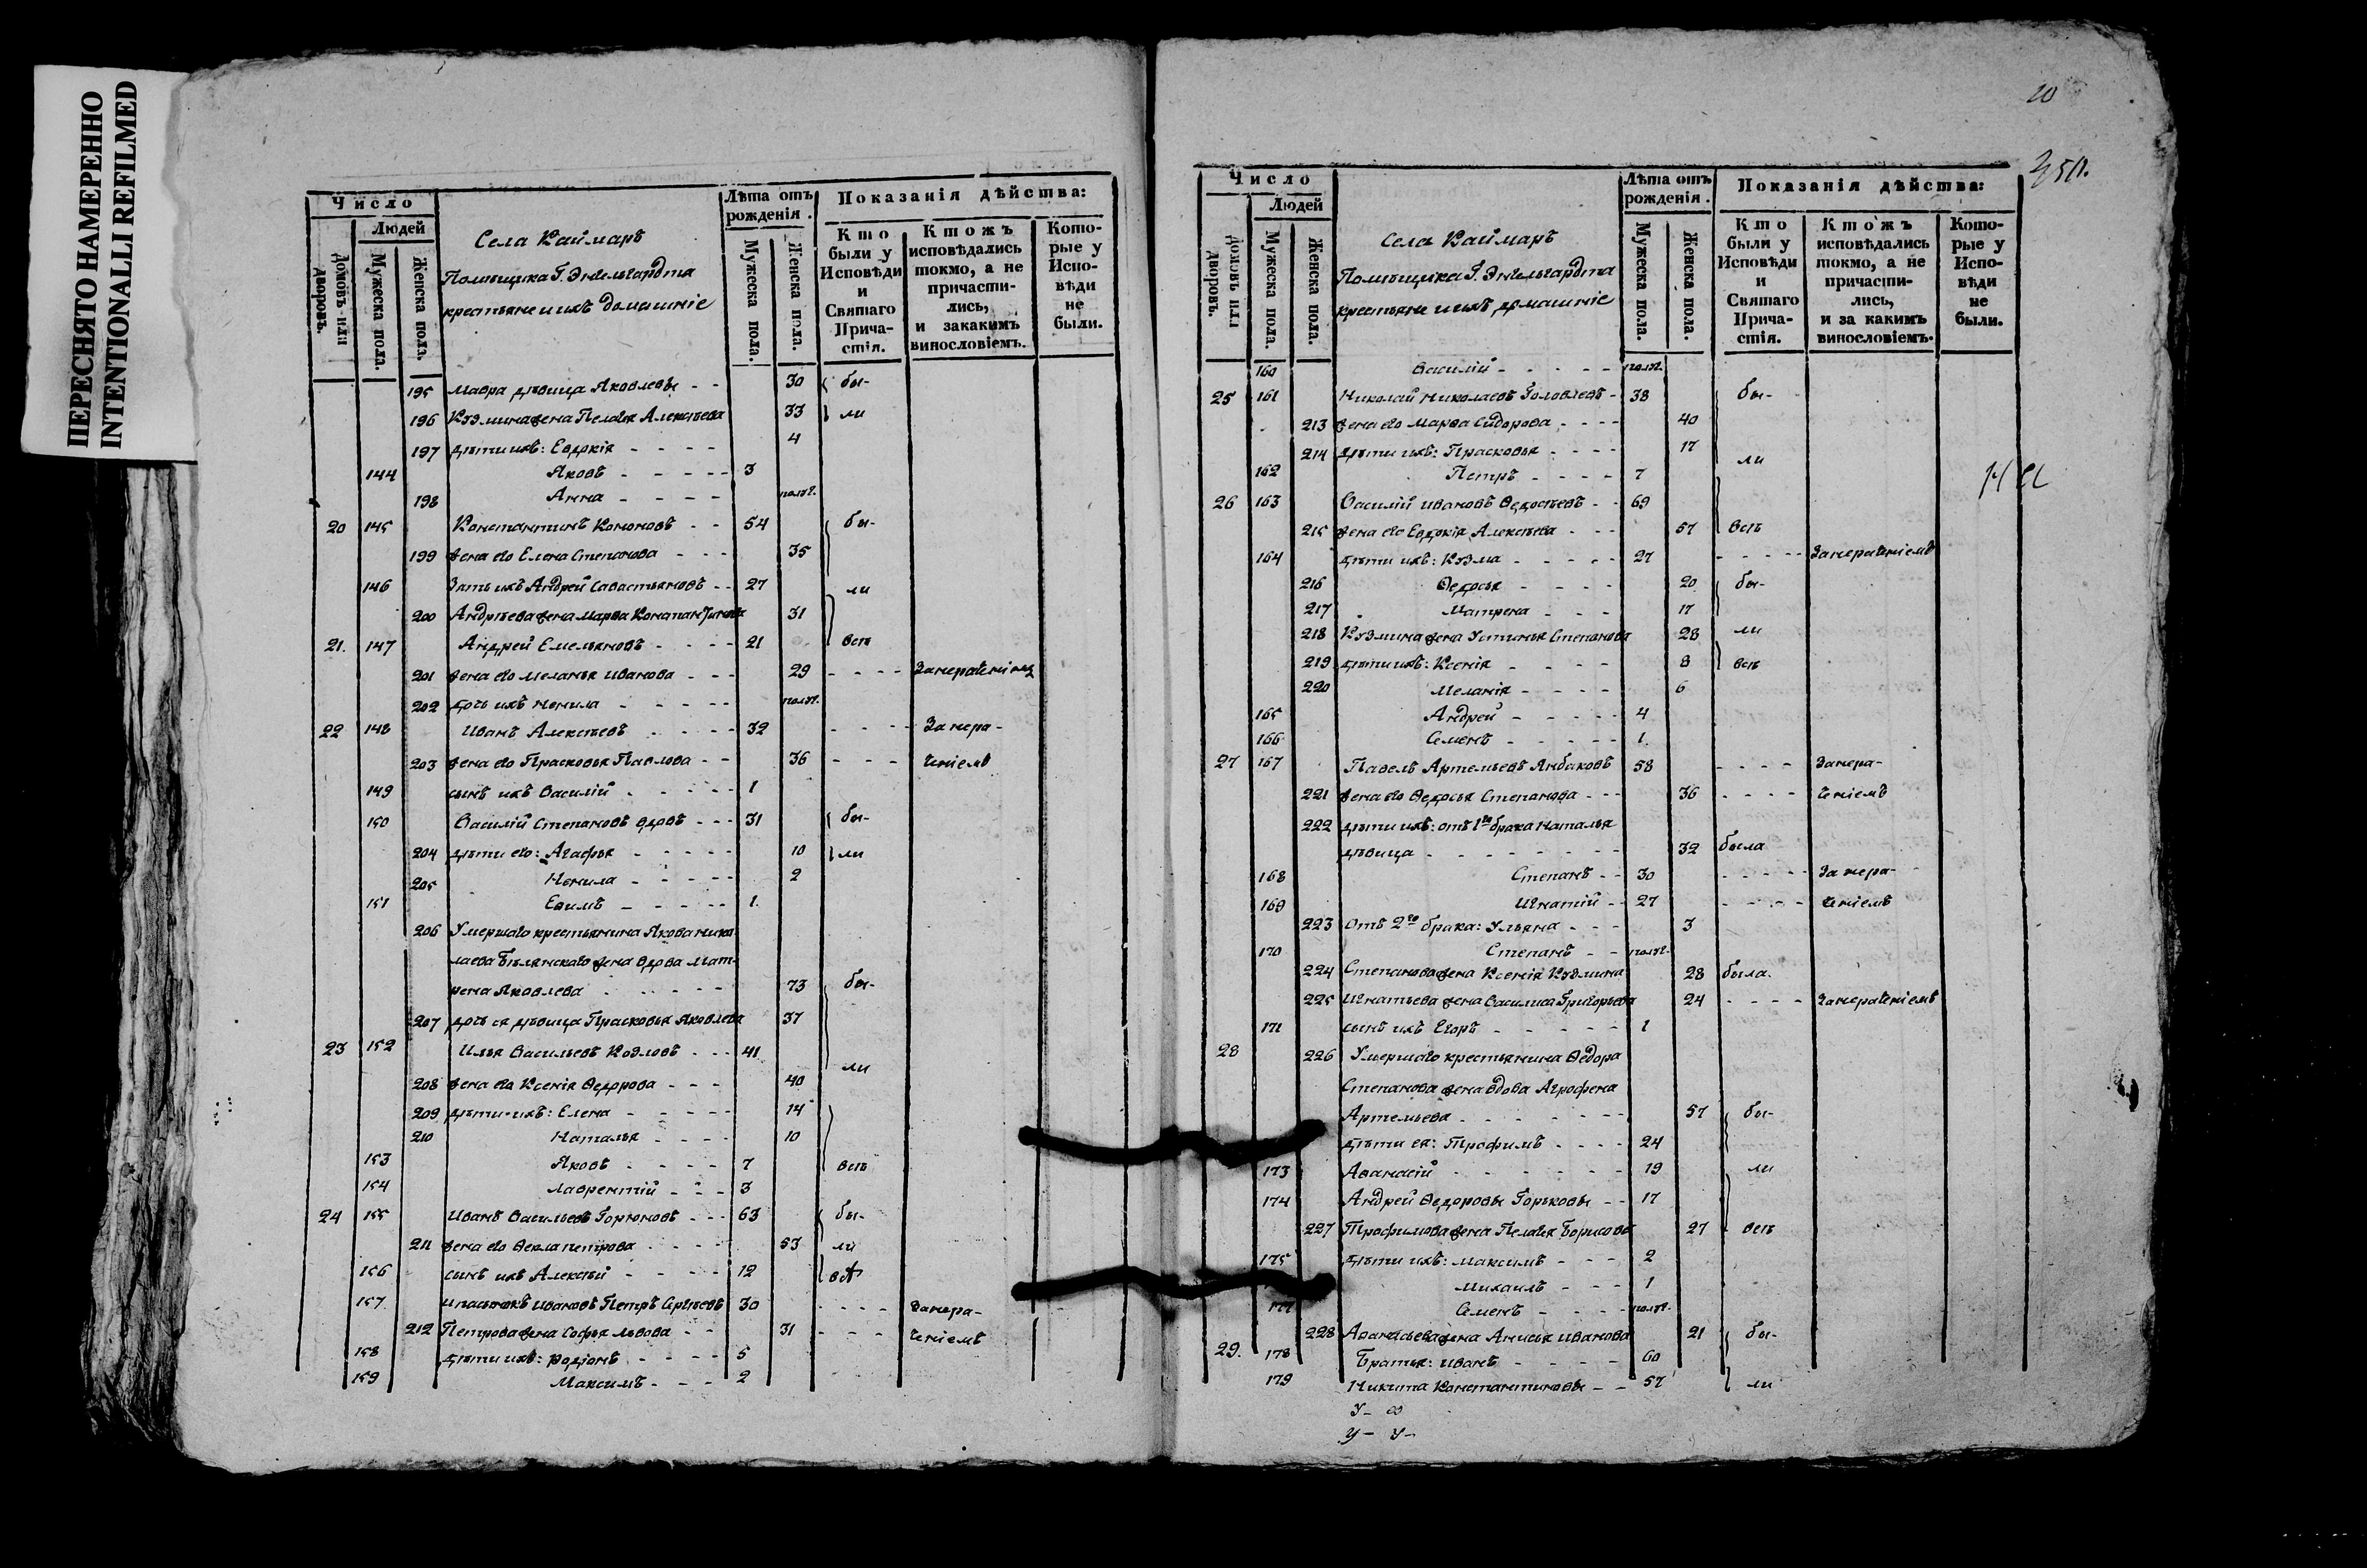 ПЕРЕСНЯТО НАМЕРЕННО
INTENTIONALLI REFILMED
Число
Людей
Домовъ или дворовъ.
Мужеска пола.
Женска пола.
Села Каймаръ
Помѣщика Г. Энгельгардта
крестьяне и ихъ домашніе
Лѣта отъ рожденія.
Мужеска пола.
Женска пола.
Показанія дѣйства:
Кто были у Исповѣди и Святаго Причастія.
Ктожъ исповѣдались токмо, а не причастились, и закакимъ винословіемъ.
Которые у Исповѣди не были.
195 Мавра дѣвица Яковлевы - - 30 бы-
196 Кузмина жена Пелагѣя Алексѣева 33 ли
197 дѣти ихъ: Евдокія - - - - 4
144 Яковъ - - - - - 3
198 Анна - - - - полг.
20 145 Константинъ Кононовъ - - 54 бы-
199 жена его Елена Степанова - - - 35
146 Зять ихъ Андрей Савастьяновъ - - 27 ли
200 Андрѣева жена Марѳа Константинова 31
21. 147 Андрей Емельяновъ - - - - 21 всѣ
201 жена его Меланья Иванова - - - 29 - - - - За нераченіемъ
202 дочь ихъ Ненила - - - - - полг.
22 148 Иванъ Алексѣевъ - - - - 32 - - - - За нера-
203 жена его Прасковья Павлова - - 36 - - - ченіемъ
149 сынъ ихъ Василій - - - - - 1
150 Василій Степановъ вдовъ - - - 31 бы-
204 дѣти его: Агафья - - - - - 10 ли
205 Ненила - - - - - 2
151 Евимъ - - - - - 1.
206 Умершаго крестьянина Якова Нико-
лаева Бѣлянскаго жена вдова Мат-
рена Яковлева - - - - - - 73 бы-
207 дочь ея дѣвица Прасковья Яковлева 37
23 152 Илья Васильевъ Козловъ - - - 41 ли
208 жена его Ксенія Ѳедорова - - - 40
209 дѣти ихъ: Елена - - - - - 14
210 Наталья - - - - 10
153 Яковъ - - - - 7 всѣ
154 Лаврентій - - - 3
24 155 Иванъ Васильевъ Горюновъ - - - 63 бы-
211 жена его Ѳекла Петрова - - - - 53 ли
156 сынъ ихъ Алексѣй - - - - 12 всѣ
157. и пасынокъ Ивановъ Петръ Сергѣевъ 30 - - - - За нера-
212 Петрова жена Софья Львова - - 31 - - - ченіемъ
158 дѣти ихъ: Родіонъ - - - - 5
159 Максимъ - - - 2
20
351.
Число
Людей
Домовъ или дворовъ.
Мужеска пола.
Женска пола.
Села Каймаръ
Помѣщика Г. Энгельгардта
крестьяне и ихъ домашніе
Лѣта отъ рожденія.
Мужеска пола.
Женска пола.
Показанія дѣйства:
Кто были у Исповѣди и Святаго Причастія.
Ктожъ исповѣдались токмо, а не причастились, и за какимъ винословіемъ.
Которые у Исповѣди не были.
160 Василій - - - - - полг.
25 161 Николай Николаевъ Головлевъ - 38 бы-
213 жена его Марѳа Сидорова - - - - 40
214 дѣти ихъ: Прасковья - - - - 17 ли
162 Петръ - - - - 7
26 163 Василій Ивановъ Ѳедосѣевъ - - 69
215 жена его Евдокія Алексѣева - - - 57 всѣ
164 дѣти ихъ: Кузма - - - - - 27 - - - - - За нераченіемъ
216 Ѳедосья - - - - 20 бы-
217 Матрена - - - 17
218 Кузмина жена Устинья Степанова 28 ли
219 дѣти ихъ: Ксенія - - - - 8 всѣ
220 Меланія - - - - 6
165 Андрей - - - - - 4
166 Семенъ - - - - - 1.
27 167 Павелъ Артемьевъ Янбаковъ 58 - - - - За нера-
221 жена его Ѳедосья Степанова - - - 36 - - - - ченіемъ
222 дѣти ихъ: отъ 1го брака Наталья
дѣвица - - - - - - - - 32 была
168 Степанъ - - 30 - - - - - За нера-
169 Игнатій - - 27 - - - - ченіемъ
223 Отъ 2го брака: Ульяна - - - 3
170 Степанъ - - полг.
224 Степанова жена Ксенія Кузмина 28 была.
225 Игнатьева жена Василиса Григорьева 24 - - - - За нераченіемъ
171 сынъ ихъ Егоръ - - - - - 1
28 226 Умершаго крестьянина Ѳедора
Степанова жена вдова Агрофена
Артемьева - - - - - - - 57 бы-
дѣти ея: Трофимъ - - - - 24
173 Аѳанасій - - - - - - 19 ли
174 Андрей Ѳедоровы Горьковы - - 17
227 Трофимова жена Пелагѣя Борисова 27 всѣ
175 дѣти ихъ: Максимъ - - - 2
Михаилъ - - - 1
177 Семенъ - - - - полг.
228 Аѳанасьева жена Анисья Иванова 21 бы-
29. 178 Братья: Иванъ - - - - - 60
179 Никита Константиновы - - 57 ли